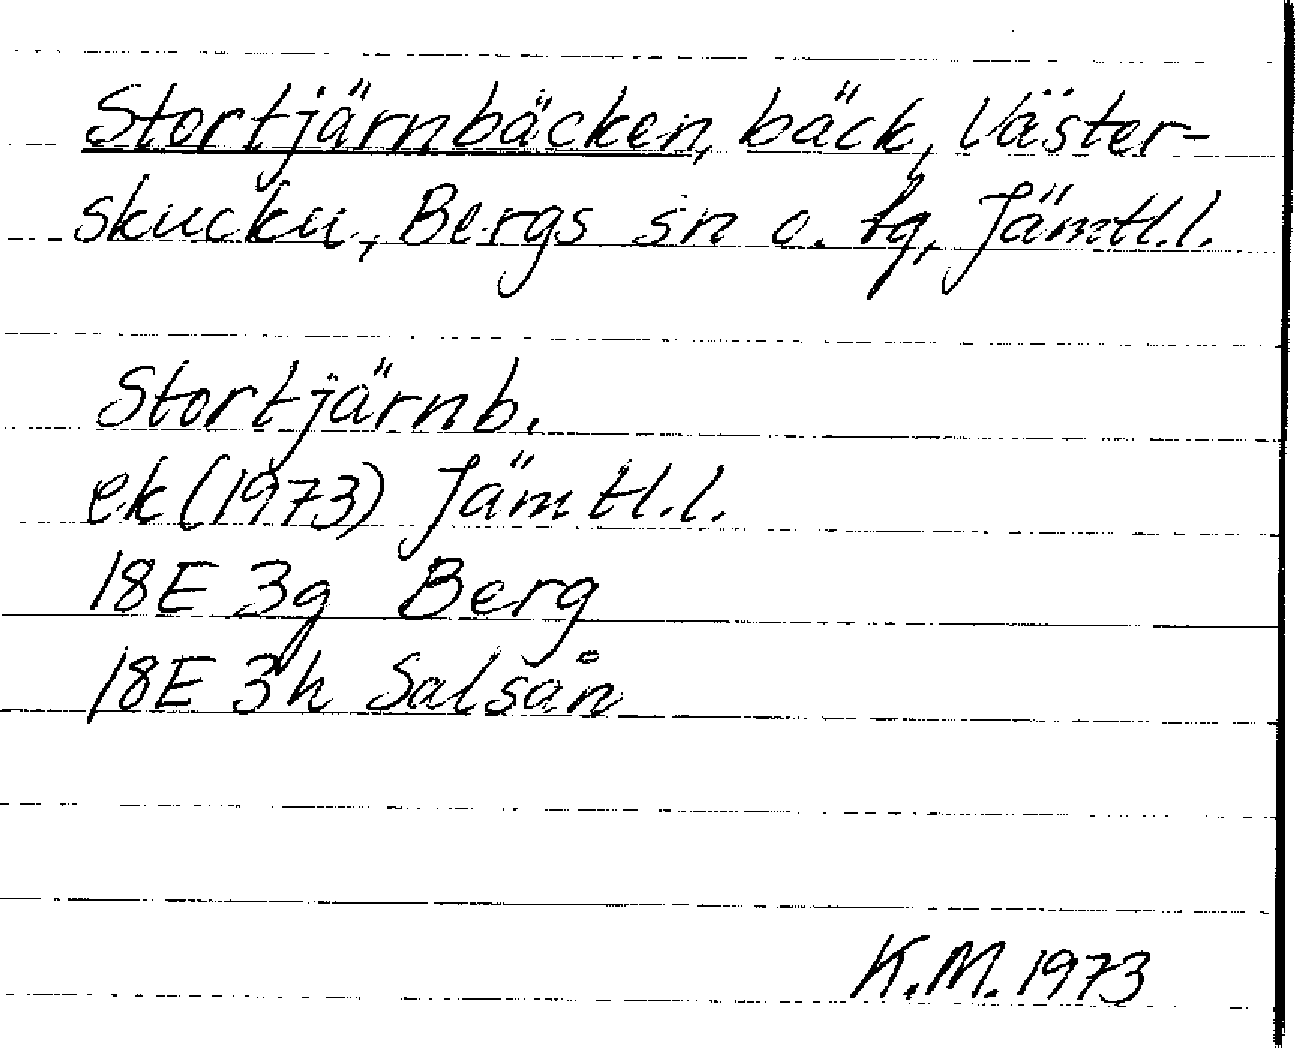 Stortjärnbäcken, bäck, Väster-
skucku, Bergs sn o. tg, Jämtl.l.
Stortjärnb.
ek (1973) Jämtl.l.
18E 3g Berg
18E 3h Salsån
K.M. 1973